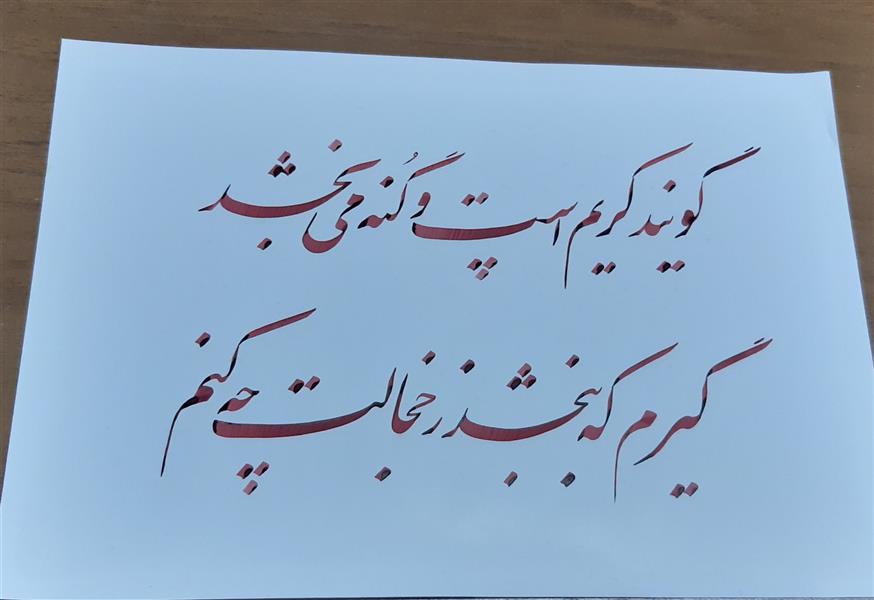 گویند کریم است و گُنه می بخشد
گیرم که ببخشد ز خجالت چه کنم